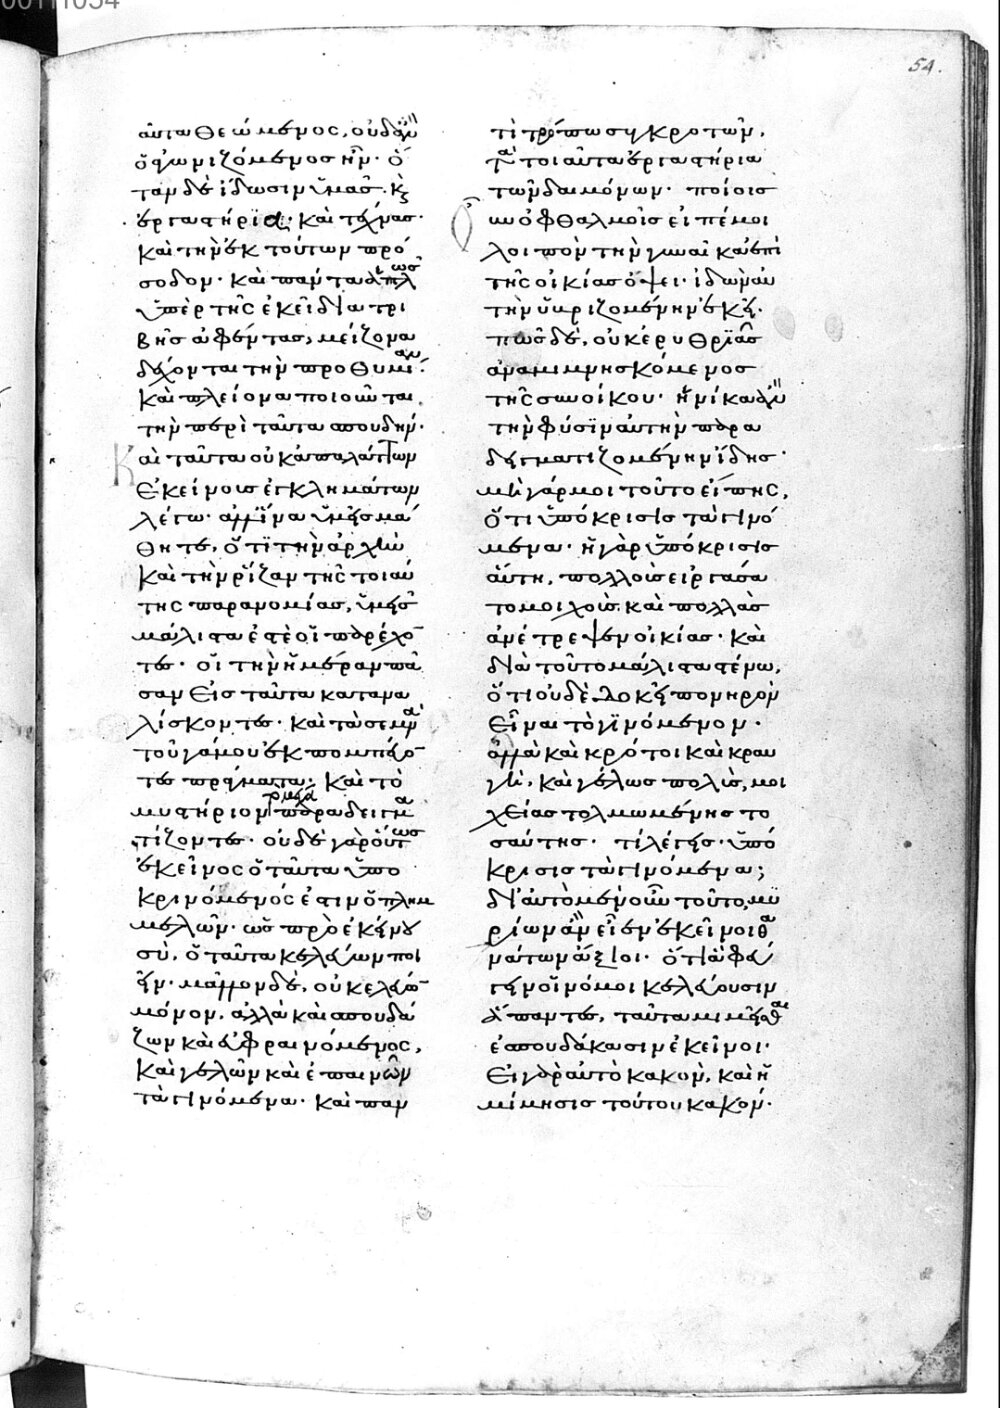 54.
αὐτα θεώμενος, οὐδὲ ὁ
ὁ ἀγωνιζόμενος ἦν· ὅ
ταν δὲ ἴδωσιν ὑμᾶς· κ
ἐργαστήρια· καὶ τέχνας·
καὶ τὴν ἐκ τούτων πρό
σοδον· καὶ πάντα ἁπλῶς
ὑπὲρ τῆς ἐκεῖ διατρι
βῆς ἀφέντας, μείζονα
δέχονται τὴν προθυμίαν·
καὶ πλείονα ποιοῦνται
τὴν περὶ ταῦτα σπουδήν·
Καὶ ταῦτα οὐκ ἀπαλάττων
ἐκείνοις ἐγκλημάτων
λέγω· ἀλλ' ἵνα ὑμεῖς μά
θητε, ὅτι τὴν ἀρχὴν
καὶ τὴν ῥίζαν τῆς τοιαύ
της παρανομίας, ὑμεῖς
μάλιστα ἐστὲ οἱ παρέχο
τες· οἱ τὴν ἡμέραν πᾶ
σαν εἰς ταῦτα κατανα
λίσκοντες· καὶ τὰ σεμνὰ
τοῦ γάμου ἐκπομπεύο
τες πράγματα· καὶ τὸ
μυστήριον τὸ μέγα παραδειγμα
τίζοντες· οὐδὲ γὰρ οὕτως
ἐκεῖνος ὁ ταῦτα ὑπο
κρινόμενός ἐστιν ὁ πλημ
μελῶν· ὡς πρὸ ἐκείνου
σύ, ὁ ταῦτα κελεύων ποι
εῖν· μᾶλλον δὲ, οὐ κελεύω
μόνον, ἀλλὰ καὶ σπουδά
ζων καὶ εὐφραινόμενος,
καὶ γελῶν καὶ ἐπαινῶν
τὰ γινόμενα· καὶ παν
τὶ τρόπω συγκροτῶν,
τὰ τοιαῦτα ἐργαστήρια
τῶν δαιμόνων· ποίοις
οὖν ὀφθαλμοῖς εἰπέ μοι
λοιπὸν τὴν γυναῖκα ἐπὶ
τῆς οἰκίας ὄψει· ἰδὼν αὐ
τὴν ὑβριζομένην ἐκεῖ·
πῶς δὲ, οὐκ ἐρυθριᾶς
ἀναμιμνησκόμενος
τῆς συνοίκου· ἡνίκα ἂν
τὴν φύσιν αὐτὴν παρα
δειγματιζομένην ἴδης·
μὴ γάρ μοι τοῦτο εἴπης,
ὅτι ὑπόκρισις τὰ γινό
μενα· ἡ γὰρ ὑπόκρισις
αὕτη, πολλοὺς εἰργάσα
το μοιχοὺς, καὶ πολλὰς
ἀνέτρεψεν οἰκίας· καὶ
διὰ τοῦτο μάλιστα στένω,
ὅτι οὐδὲ δοκεῖ πονηρὸν
εἶναι τὸ γινόμενον·
ἀλλὰ καὶ κρότοι καὶ κραυ
γὴ, καὶ γέλως πολὺς, μοι
χείας τολμωμένης το
σαύτης· τί λέγεις· ὑπό
κρισις τὰ γινόμενα;
δι' αὐτὸ μὲν οὖν τοῦτο, μυ
ρίων ἂν εἶεν ἐκεῖνοι θα
νάτων ἄξιοι· ὅτι ἃ φεύ
γειν οἱ νόμοι κελεύουσιν
ἅπαντες, ταῦτα μιμεῖσθαι
ἐσπουδάκασιν ἐκεῖνοι·
Εἰ γὰρ αὐτὸ κακὸν, καὶ ἡ
μίμησις τούτου κακόν·